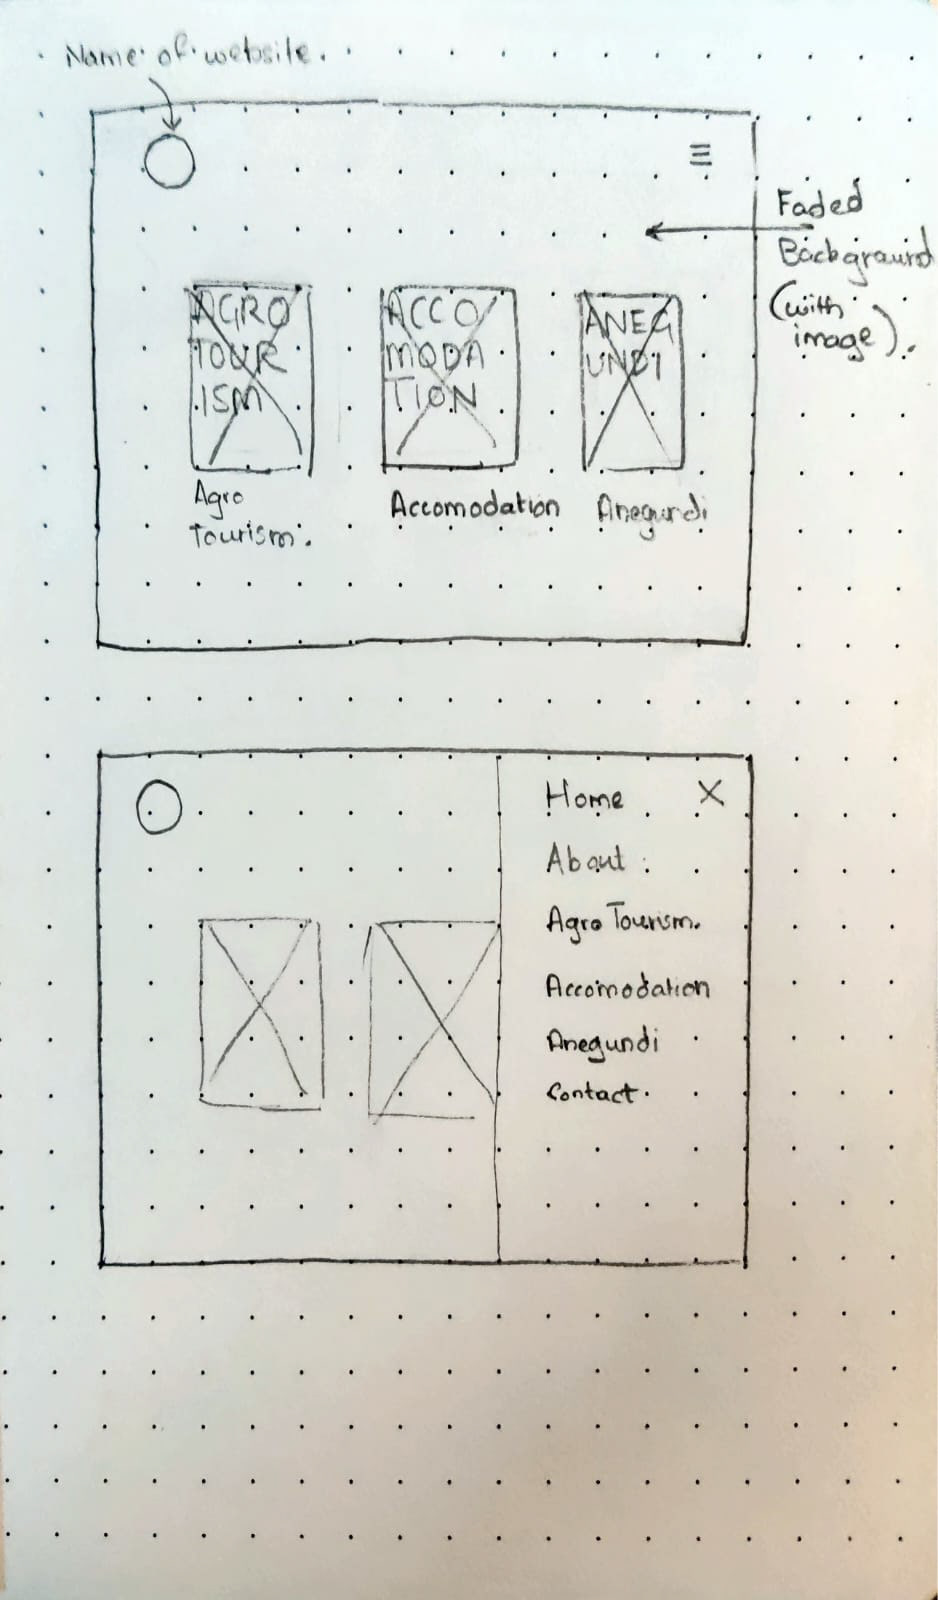 Name of website.
Faded
Background
(with
image).
AGRO
TOUR
ISM
ACCO
MODA
TION
ANEG
UNDI
Agro
Tourism.
Accomodation
Anegundi
Home X
About
Agro Tourism.
Accomodation
Anegundi
Contact